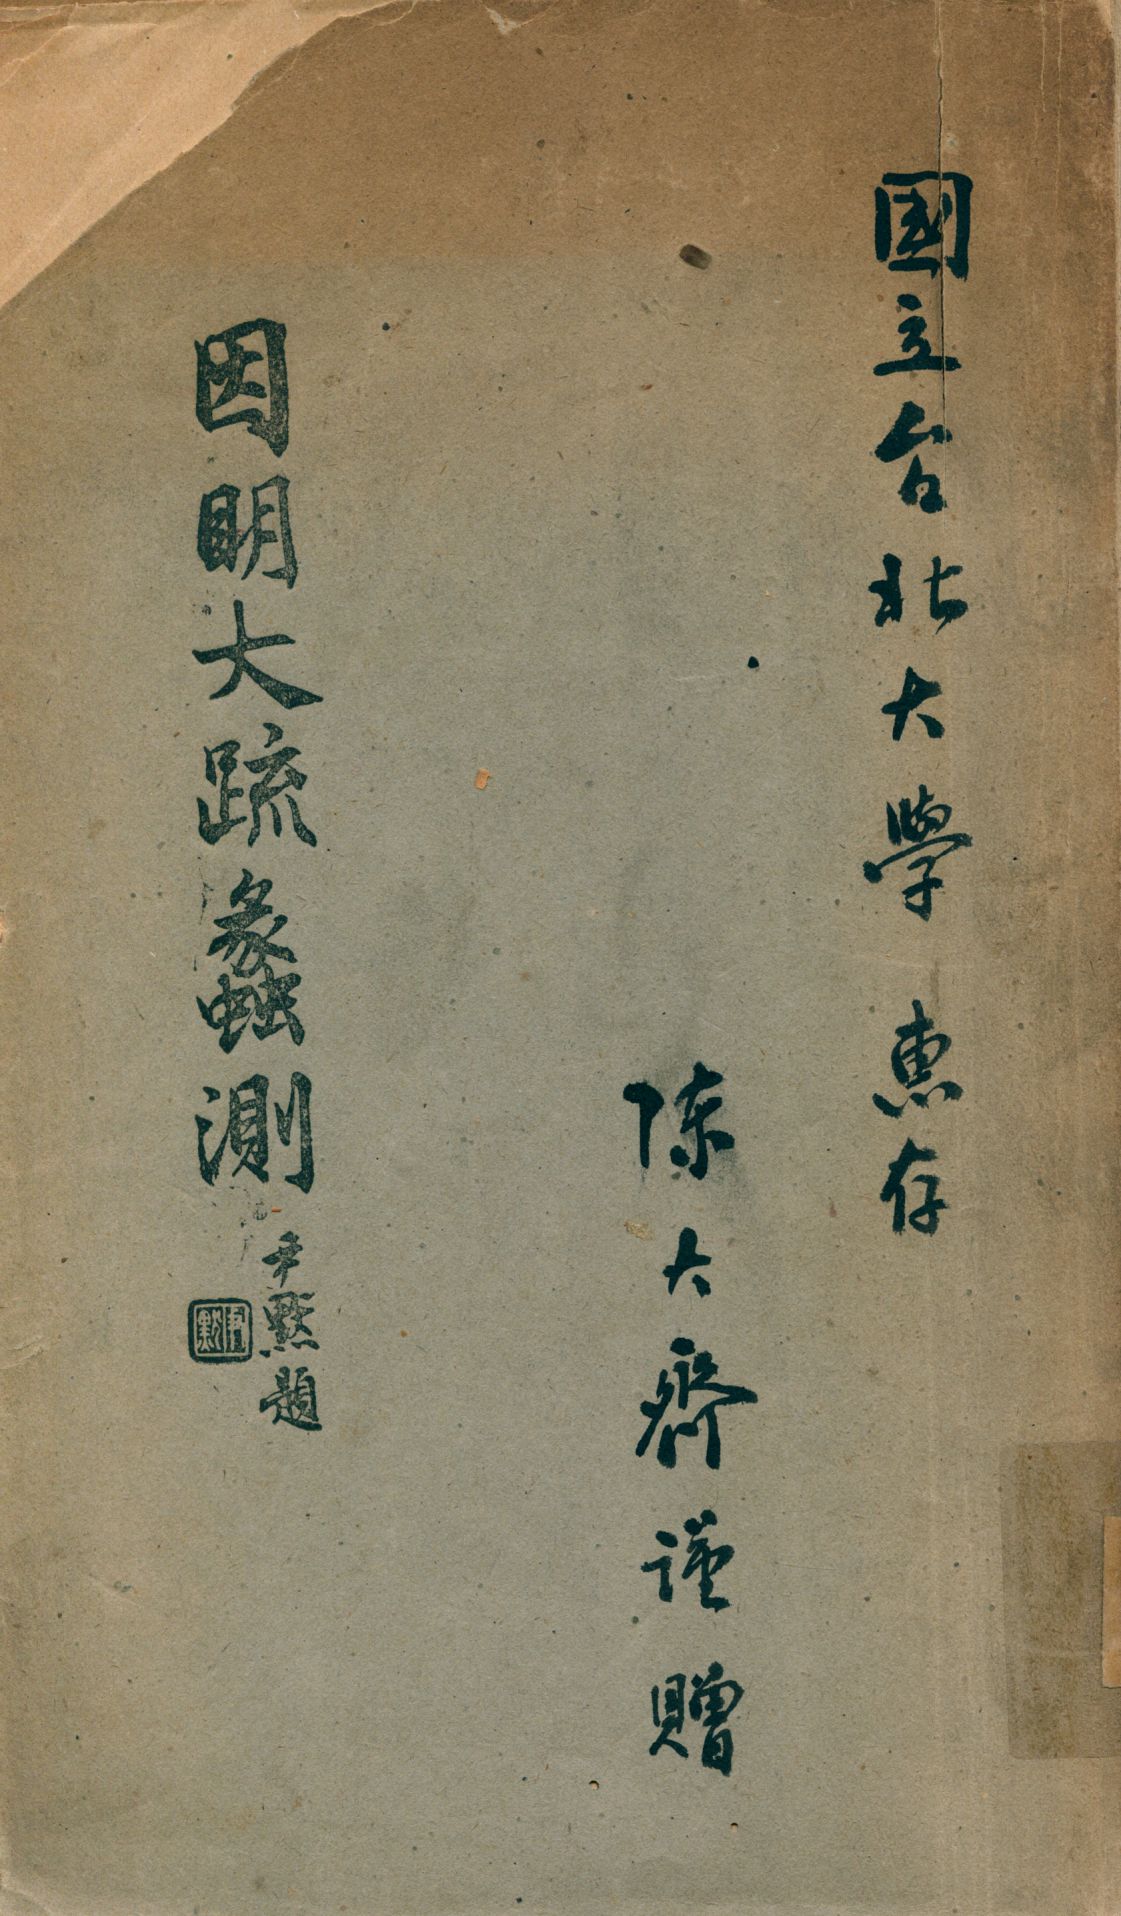 國立台北大學 惠存
陳大齊謹贈
因明大疏蠡測
尹默題
尹默